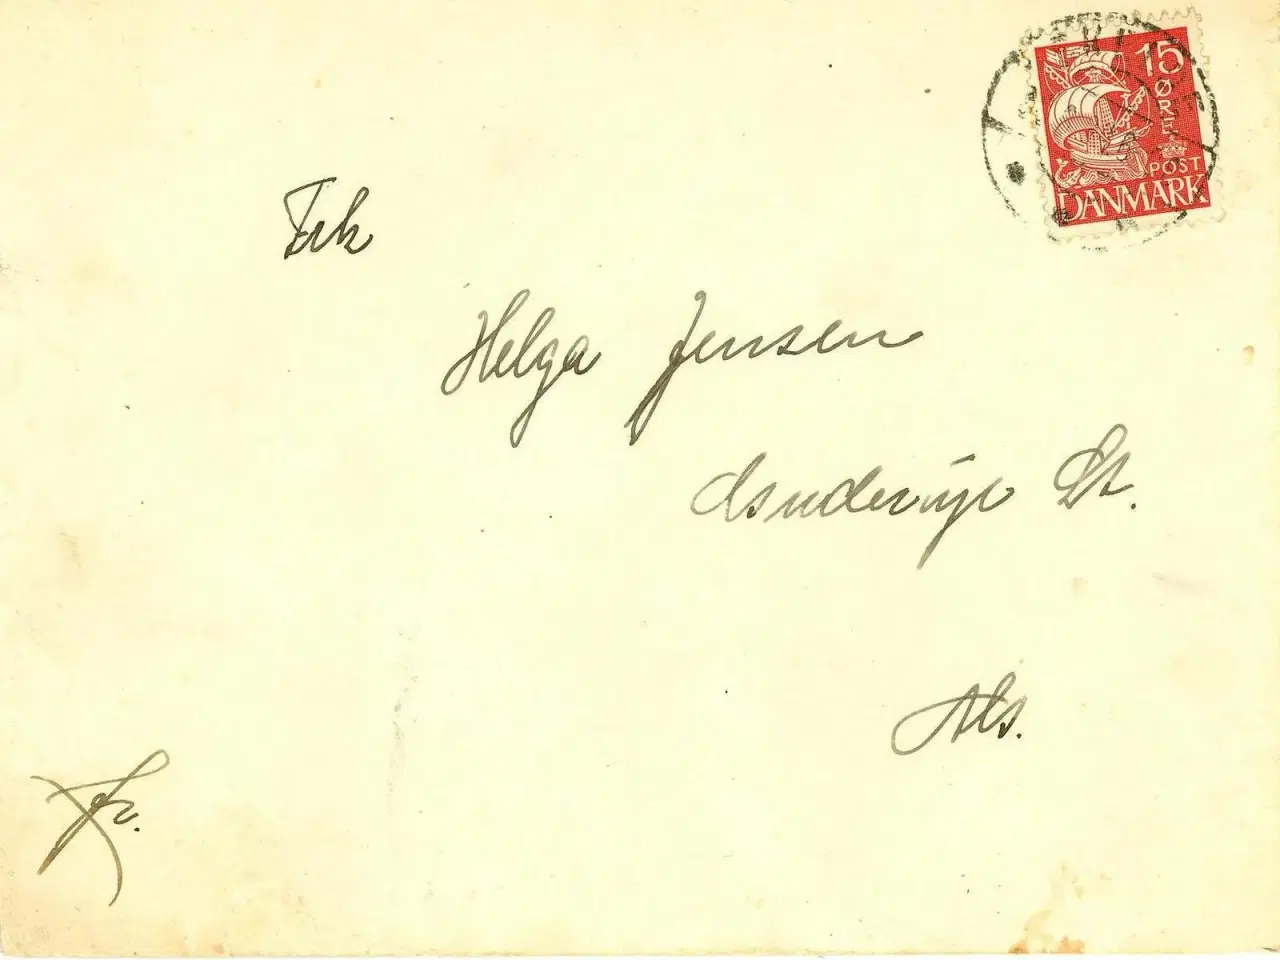 15
ØRE
POST
DANMARK
Frk
Helga Jensen
St.
Als.
Fr.